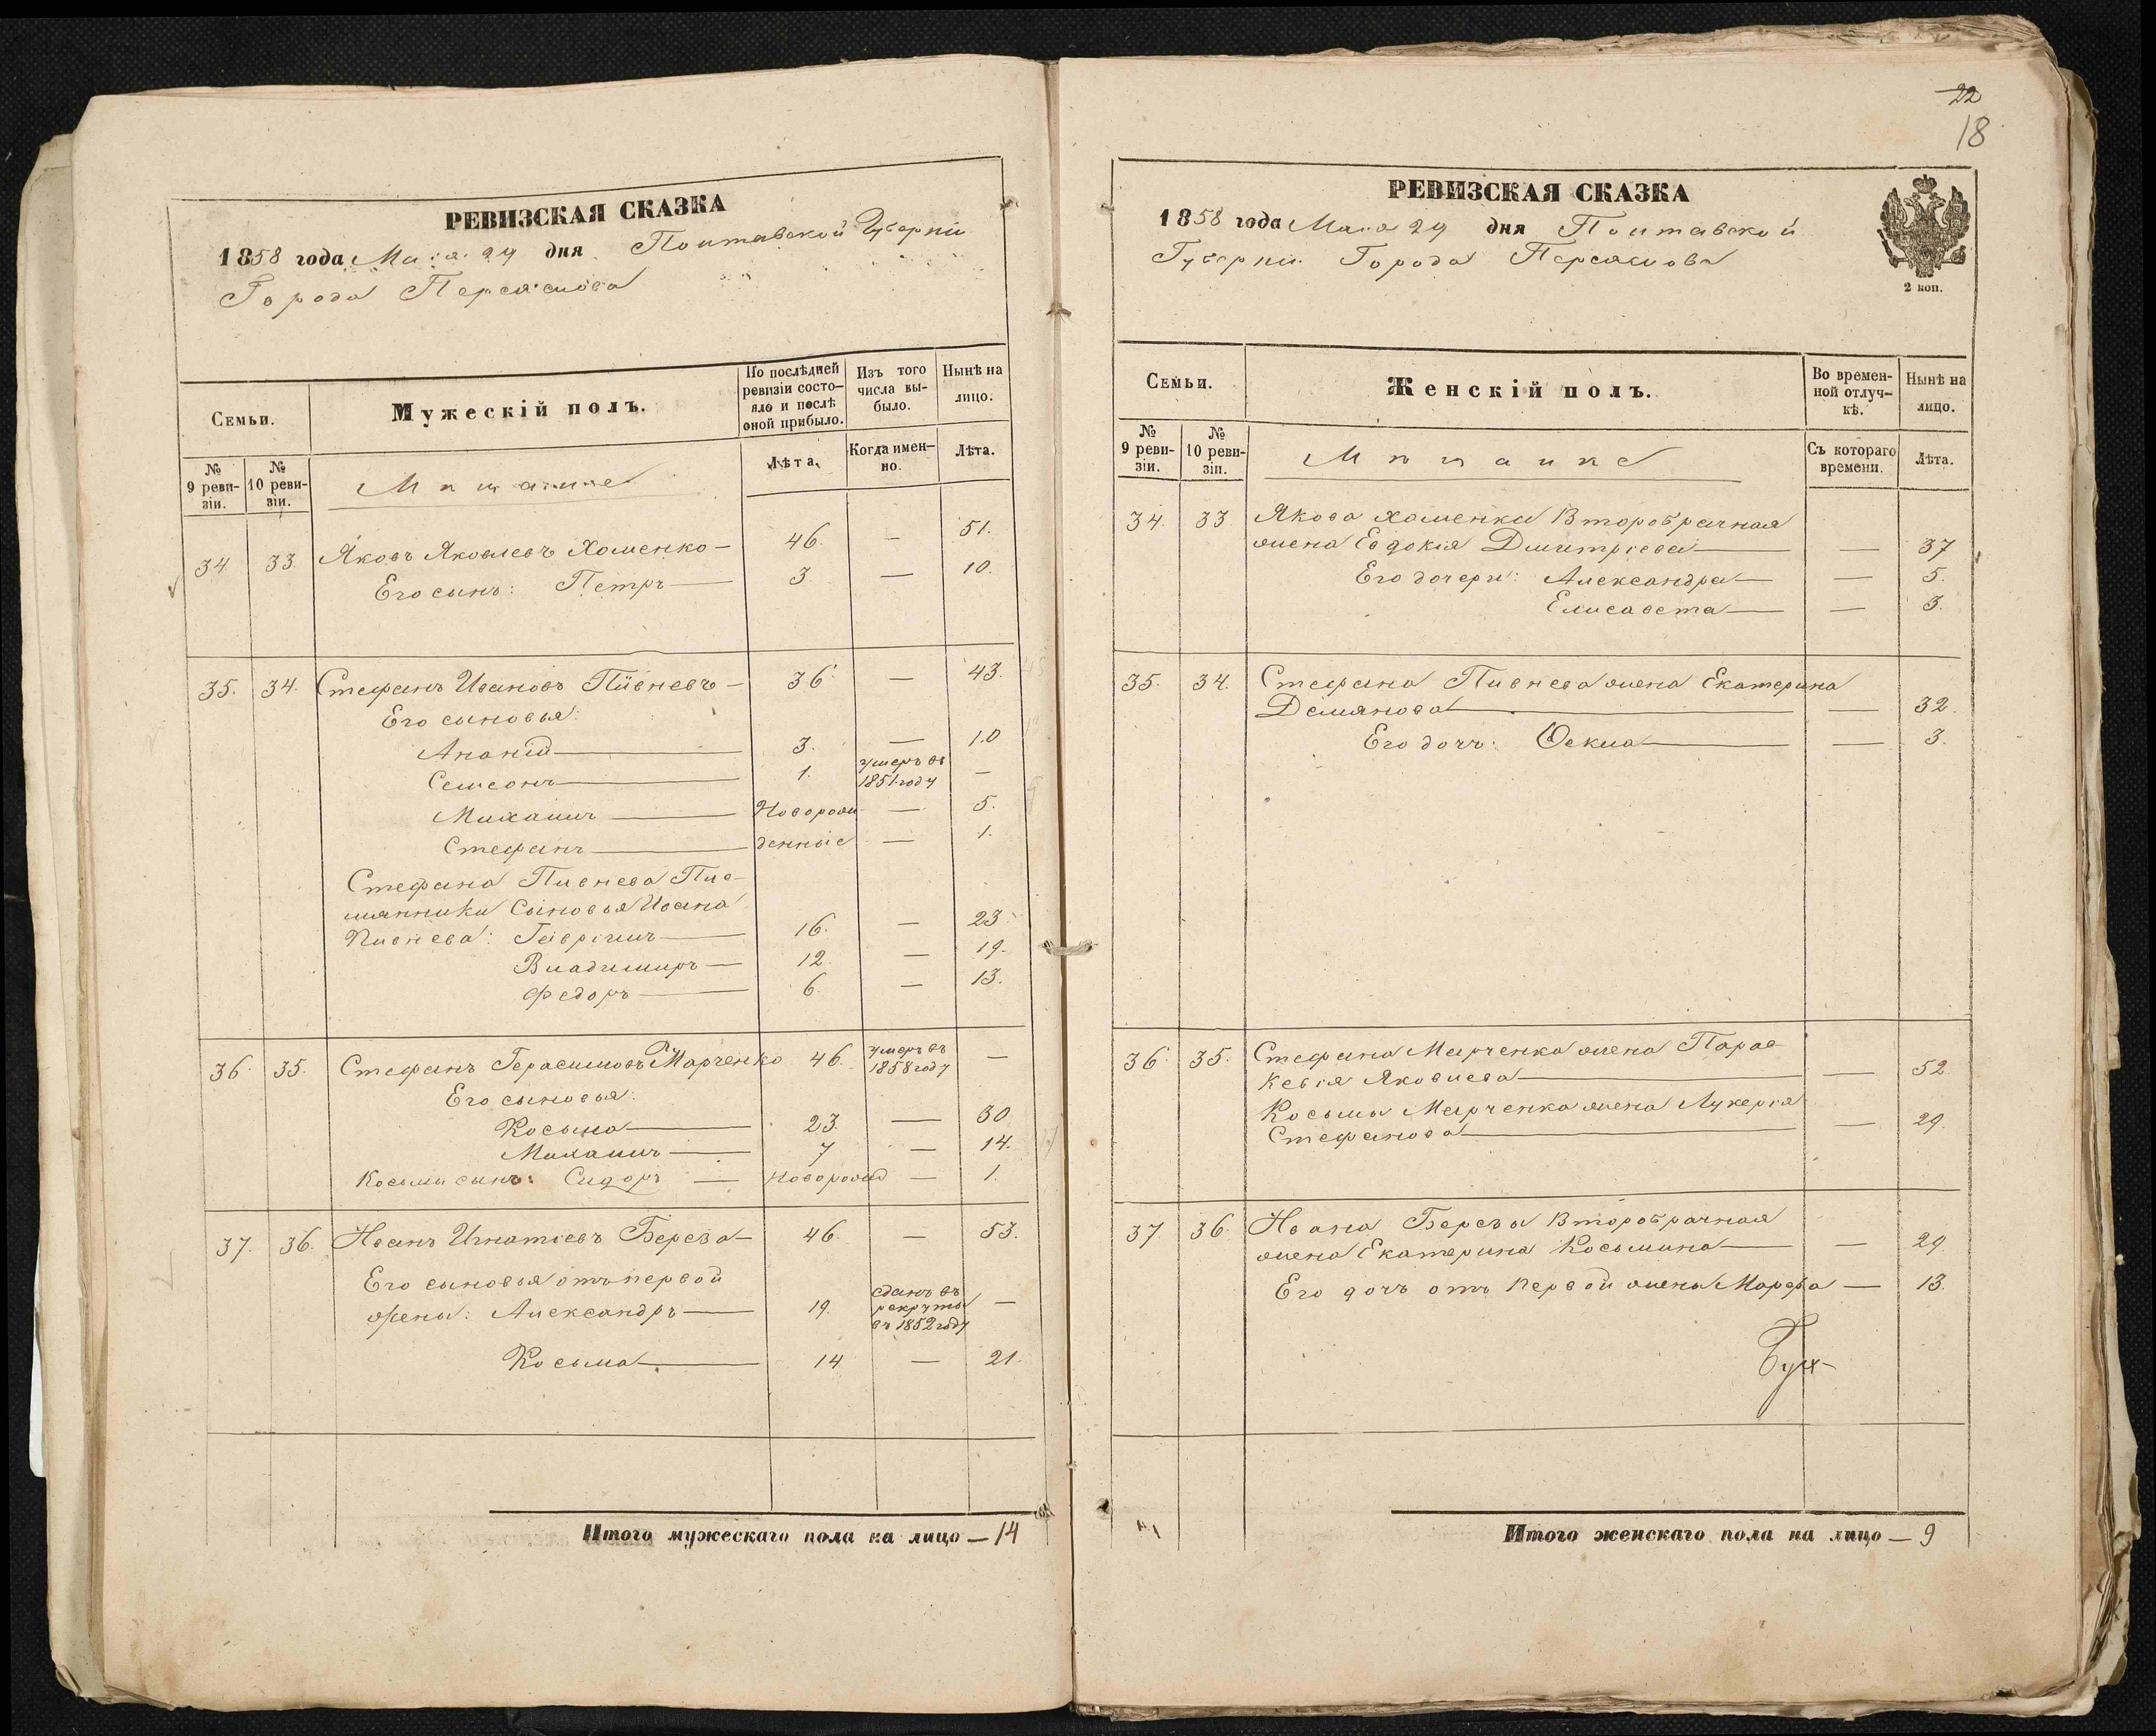 РЕВИЗСКАЯ СКАЗКА
1858 года Маія 29 дня Полтавской Губерніи
Города Переяслова
Семьи.
Мужескій полъ.
По послѣдней ревизіи состояло и послѣ оной прибыло.
Изъ того числа выбыло.
Нынѣ на лицо.
№ 9 ревизіи.
№ 10 ревизіи.
Мѣщане
Лѣта.
Когда именно.
Лѣта.
34 33. Яковъ Яковлевъ Хоменко — 46. — 51.
Его сынъ: Петръ — 3 — 10.
35. 34. Стефанъ Ивановъ Пивневъ — 36. — 43.
Его сыновья:
Ананій — 3. — 10
Семеонъ — 1. умеръ въ 1851 году —
Михаилъ — Новорож — 5.
Стефанъ — денные — 1.
Стефана Пивнева Пле-
мянники Сыновья Ивана
Пивнева: Гавріилъ — 16. — 23.
Владимиръ — 12. — 19.
Федоръ — 6. — 13.
36. 35. Стефанъ Герасимовъ Марченко 46. умеръ въ 1858 году —
Его сыновья:
Косьма — 23. — 30.
Михаилъ — 7 — 14.
Косьмы сынъ: Сидоръ — новорожд — 1.
37. 36. Иванъ Игнатіевъ Береза — 46. — 53.
Его сыновья отъ первой
жены: Александръ — 19. сданъ въ рекруты въ 1852 году —
Косьма — 14 — 21.
Итого мужескаго пола на лицо — 14
22
18
РЕВИЗСКАЯ СКАЗКА
1858 года Маія 29 дня Полтавской
Губерніи Города Переяслова
2 коп.
Семьи.
Женскій полъ.
Во временной отлучкѣ.
Нынѣ на лицо.
№ 9 ревизіи.
№ 10 ревизіи.
Мѣщанке
Съ котораго времени.
Лѣта.
34. 33. Якова Хоменка Второбрачная
жена Евдокія Дмитріева — — 37
Его дочери: Александра — — 5.
Елисавета — — 3.
35. 34. Стефана Пивнева жена Екатерина
Демянова — — 32.
Его дочь: Фекла — — 3.
36. 35. Стефана Марченка жена Парас-
кевія Яковлева — — 52
Косьмы Марченка жена Лукерія
Стефанова — — 29.
37. 36. Ивана Березы Второбрачная
жена Екатерина Косьмина — — 29.
Его дочь отъ первой жены Марфа — 13.
Итого женскаго пола на лицо — 9